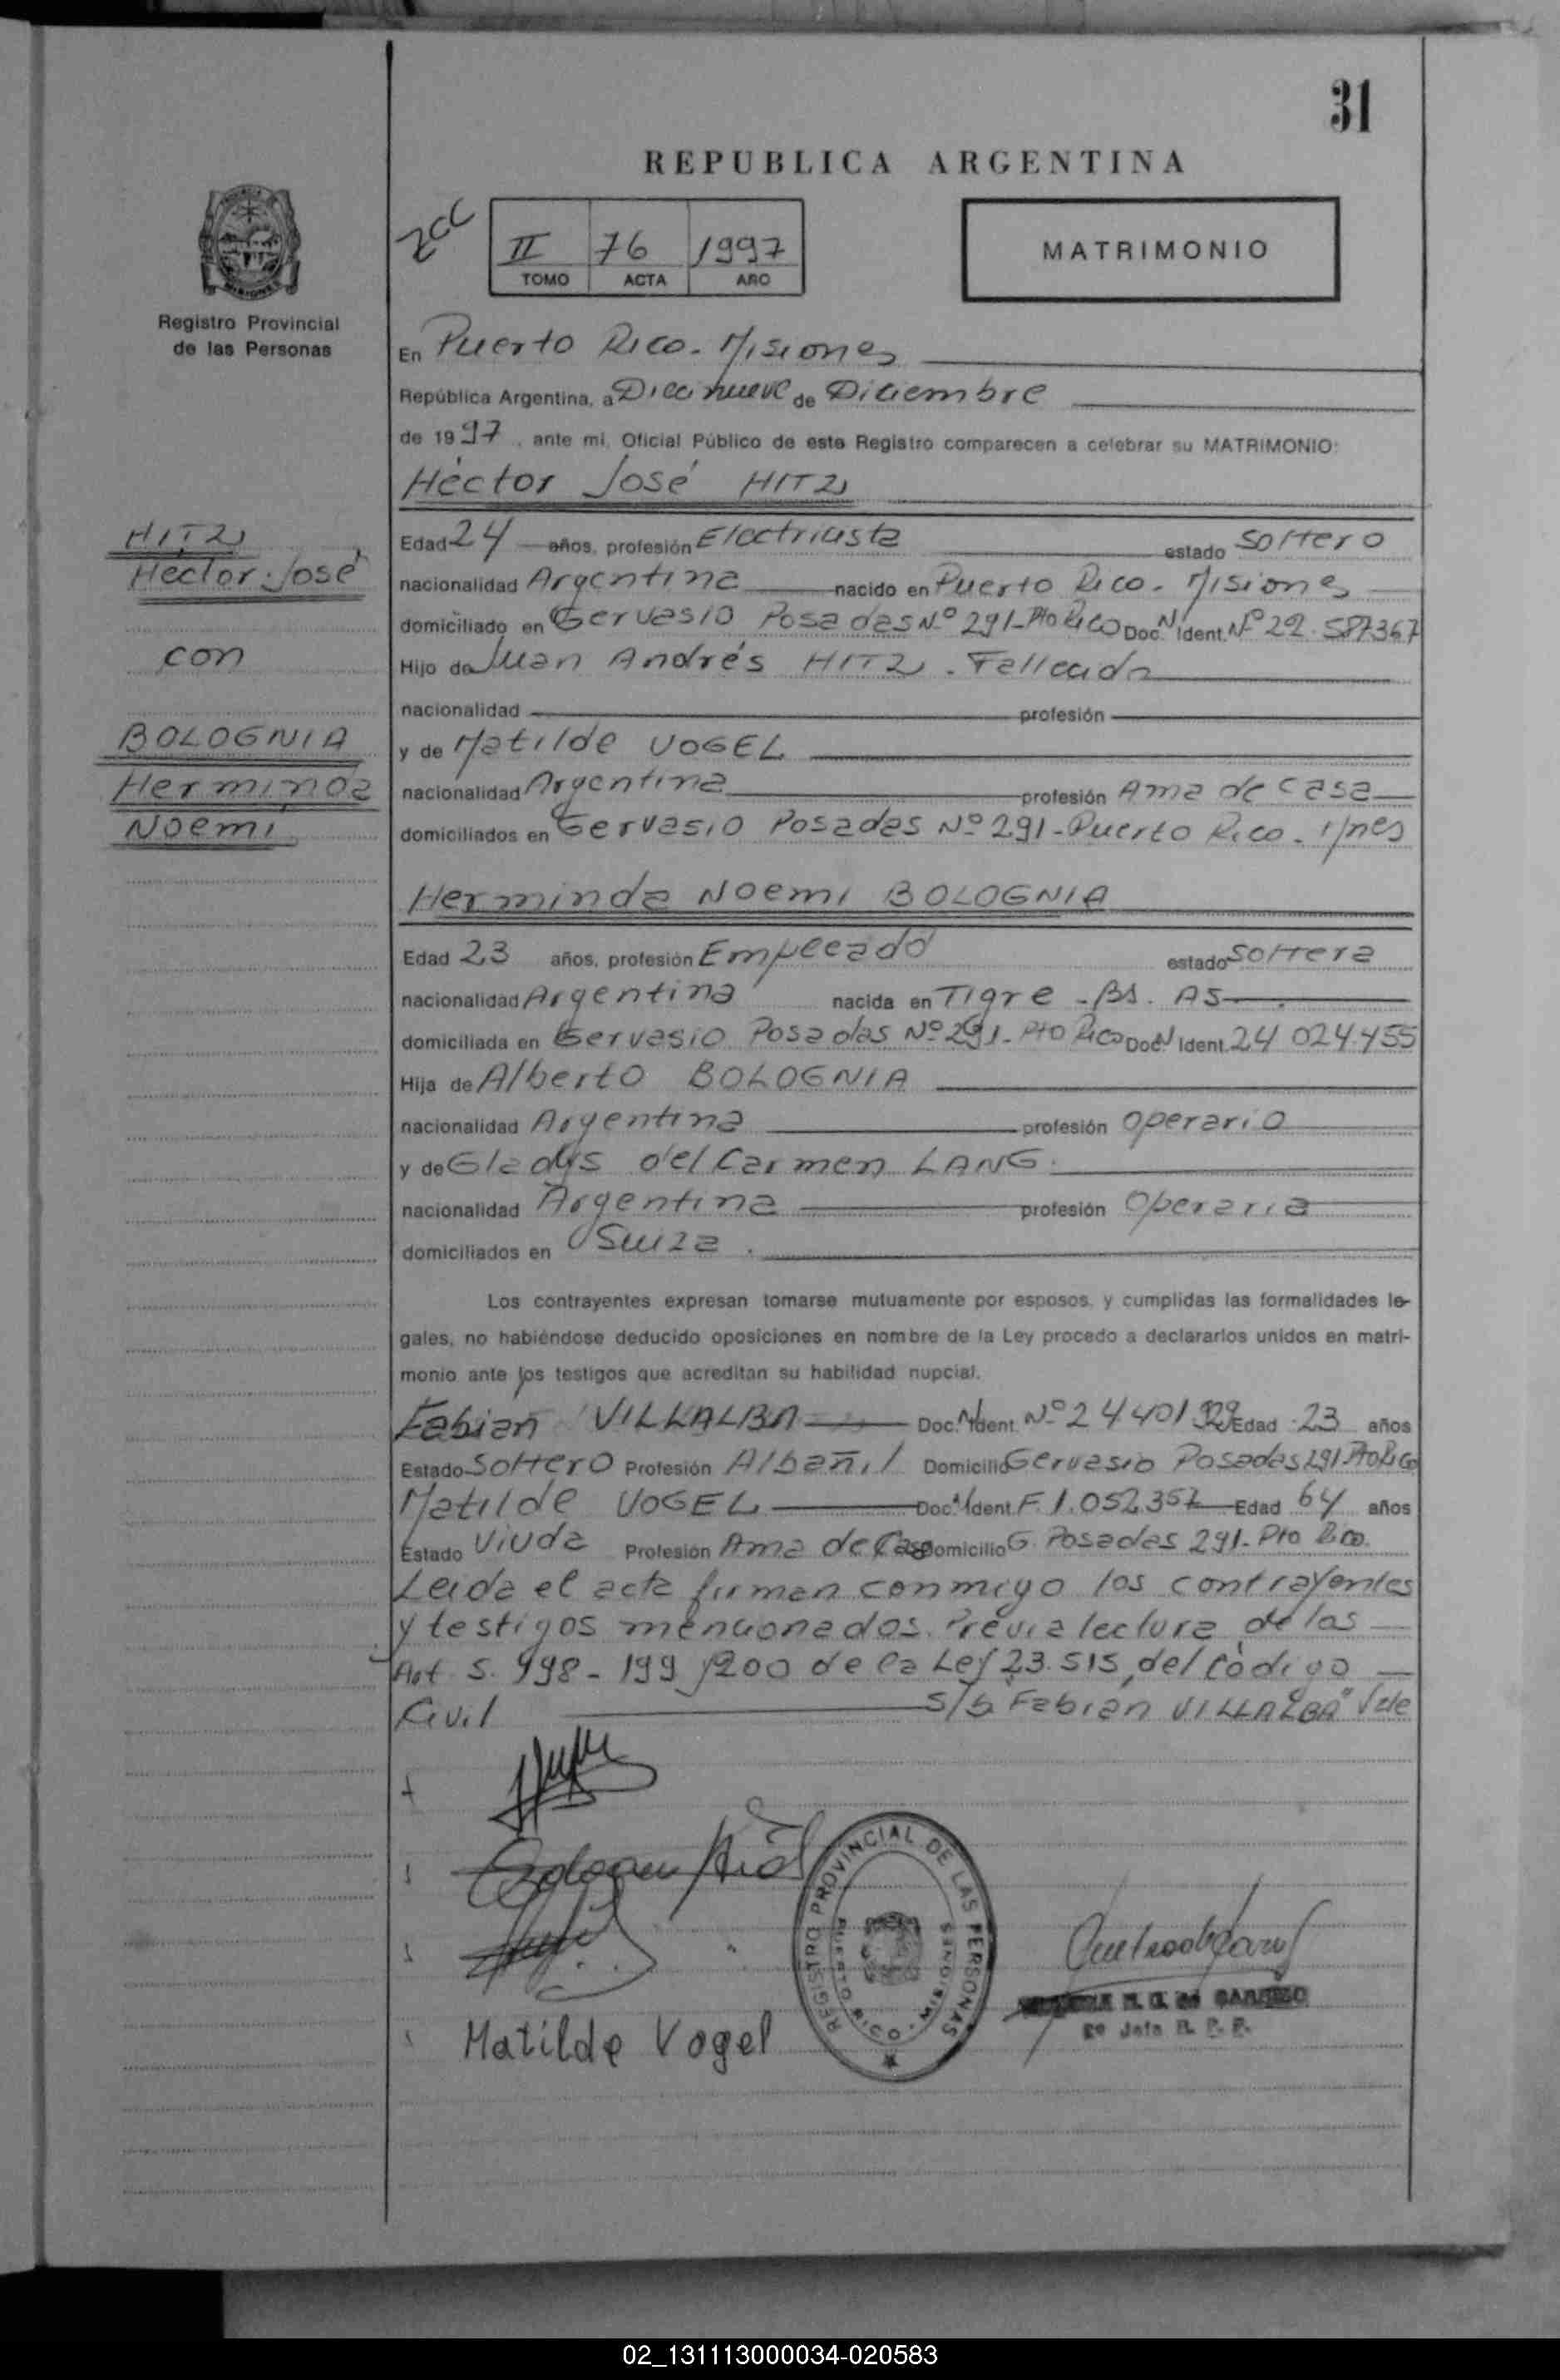 31
REPUBLICA ARGENTINA
2cc
II 76 1997
TOMO ACTA AÑO
MATRIMONIO
Registro Provincial
de las Personas
En Puerto Rico - Misiones
República Argentina, a Diecinueve de Diciembre
de 1997, ante mi, Oficial Público de este Registro comparecen a celebrar su MATRIMONIO:
Héctor José HITZ
HITZ
Héctor José
con
BOLOGNIA
Herminda
Noemi
Edad 24 años, profesión Electricista estado Soltero
nacionalidad Argentina nacido en Puerto Rico - Misiones
domiciliado en Gervasio Posadas Nº 291 - Pto Rico Doc. N. Ident. Nº 22.587367
Hijo de Juan Andrés HITZ - Fallecido
nacionalidad profesión
y de Matilde VOGEL
nacionalidad Argentina profesión Ama de casa
domiciliados en Gervasio Posadas Nº 291 - Puerto Rico - Mnes
Herminda Noemi BOLOGNIA
Edad 23 años, profesión Empleada estado Soltera
nacionalidad Argentina nacida en Tigre - Bs. As
domiciliada en Gervasio Posadas Nº 291 - Pto Rico Doc. N Ident. 24 024.455
Hija de Alberto BOLOGNIA
nacionalidad Argentina profesión Operario
y de Gladys del Carmen LANG.
nacionalidad Argentina profesión Operaria
domiciliados en Suiza.
Los contrayentes expresan tomarse mutuamente por esposos, y cumplidas las formalidades le-
gales, no habiéndose deducido oposiciones en nombre de la Ley procedo a declararlos unidos en matri-
monio ante los testigos que acreditan su habilidad nupcial.
Fabian VILLALBA Doc. N Ident. Nº 24 401 Edad 23 años
Estado Soltero Profesión Albañil Domicilio Gervasio Posadas 291 Pto Rico
Matilde VOGEL Doc. N Ident. F. 1.052.357 Edad 64 años
Estado Viuda Profesión Ama de Casa Domicilio G. Posadas 291 - Pto Rico.
Leida el acta firman conmigo los contrayentes
y testigos mencionados. Previa lectura de los
Art S. 198 - 199 y 200 de la Ley 23.515, del Código
Civil S/b Fabian VILLALBA" Vale
Matilde Vogel
REGISTRO PROVINCIAL DE LAS PERSONAS
PUERTO RICO - MISIONES
M. G. de
2º Jefe R. P. P.
02_131113000034-020583